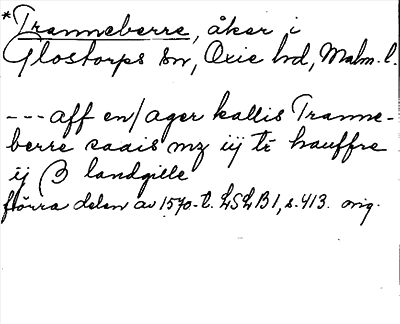 *Tranneberre, åker i
Glostorps sn, Oxie hd, Malm. l.
--- aff en/ager kallis Tranne-
berre saais mz iij tē hauffre
ij β landgille
förra delen av 1570-t. LSLB1, s. 413. orig.